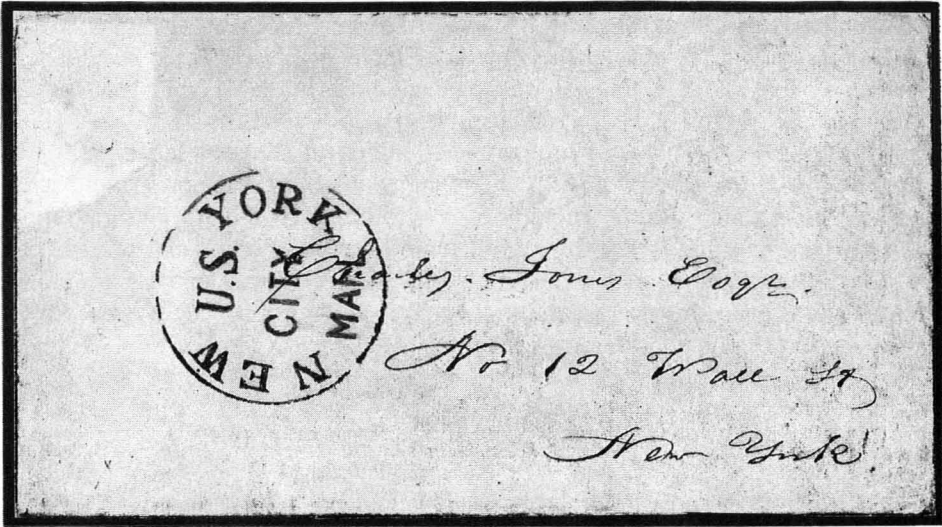 NEW YORK
U.S.
CITY
MAIL
Charles Jones Esqr.
No 12 Wall St
New York